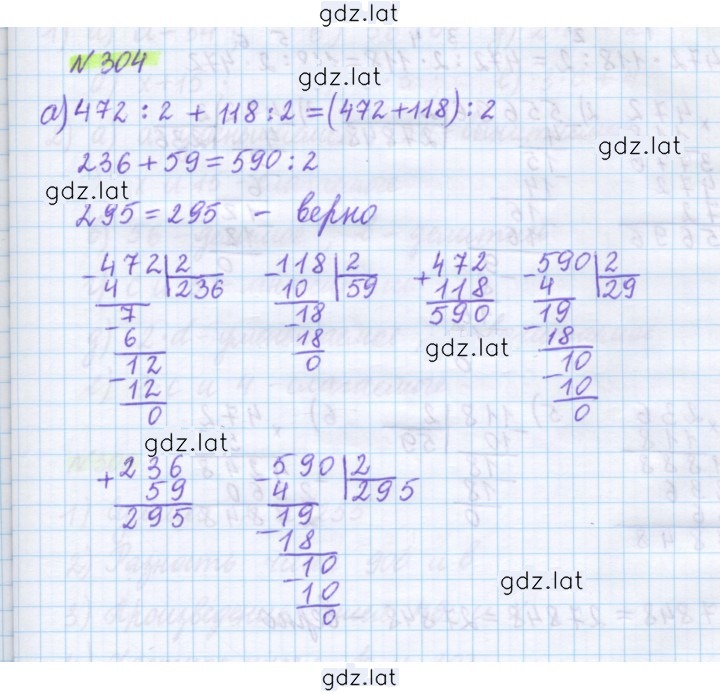 gdz.lat
№ 304
gdz.lat
а) 472 : 2 + 118 : 2 = (472 + 118) : 2
gdz.lat
236 + 59 = 590 : 2
gdz.lat
295 = 295 - верно
- 472 | 2
4 | 236
- 7
6
- 12
12
0
- 118 | 2
10 | 59
- 18
18
0
+ 472
118
590
gdz.lat
- 590 | 2
4 | 29
- 19
18
- 10
10
0
gdz.lat
+ 236
59
295
- 590 | 2
4 | 295
- 19
18
- 10
10
0
gdz.lat
gdz.lat